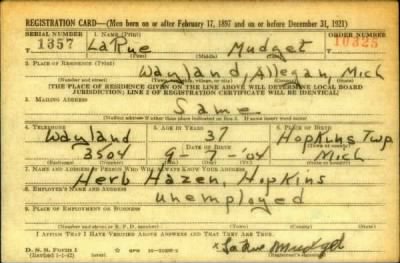 REGISTRATION CARD—(Men born on or after February 17, 1897 and on or before December 31, 1921)
SERIAL NUMBER 1. NAME (Print) ORDER NUMBER
1357 LaRue Mudget 10325
(First) (Middle) (Last)
2. PLACE OF RESIDENCE (Print)
Wayland, Allegan, Mich
(Number and street) (Town, township, village, or city) (County) (State)
[THE PLACE OF RESIDENCE GIVEN ON THE LINE ABOVE WILL DETERMINE LOCAL BOARD
JURISDICTION; LINE 2 OF REGISTRATION CERTIFICATE WILL BE IDENTICAL]
3. MAILING ADDRESS
Same
(Mailing address if other than place indicated on line 2. If same insert word same)
4. TELEPHONE 5. AGE IN YEARS 6. PLACE OF BIRTH
Wayland 37 Hopkins Twp
DATE OF BIRTH (Town or county)
3504 9-7-'04 Mich
(Exchange) (Number) (Mo.) (Day) (Yr.) (State or country)
7. NAME AND ADDRESS OF PERSON WHO WILL ALWAYS KNOW YOUR ADDRESS
Herb Hazen, Hopkins
8. EMPLOYER'S NAME AND ADDRESS
Unemployed
9. PLACE OF EMPLOYMENT OR BUSINESS
(Number and street or R. F. D. number) (Town) (County) (State)
I AFFIRM THAT I HAVE VERIFIED ABOVE ANSWERS AND THAT THEY ARE TRUE.
D. S. S. Form 1
(Revised 1-1-42) GPO
x LaRue Mudget